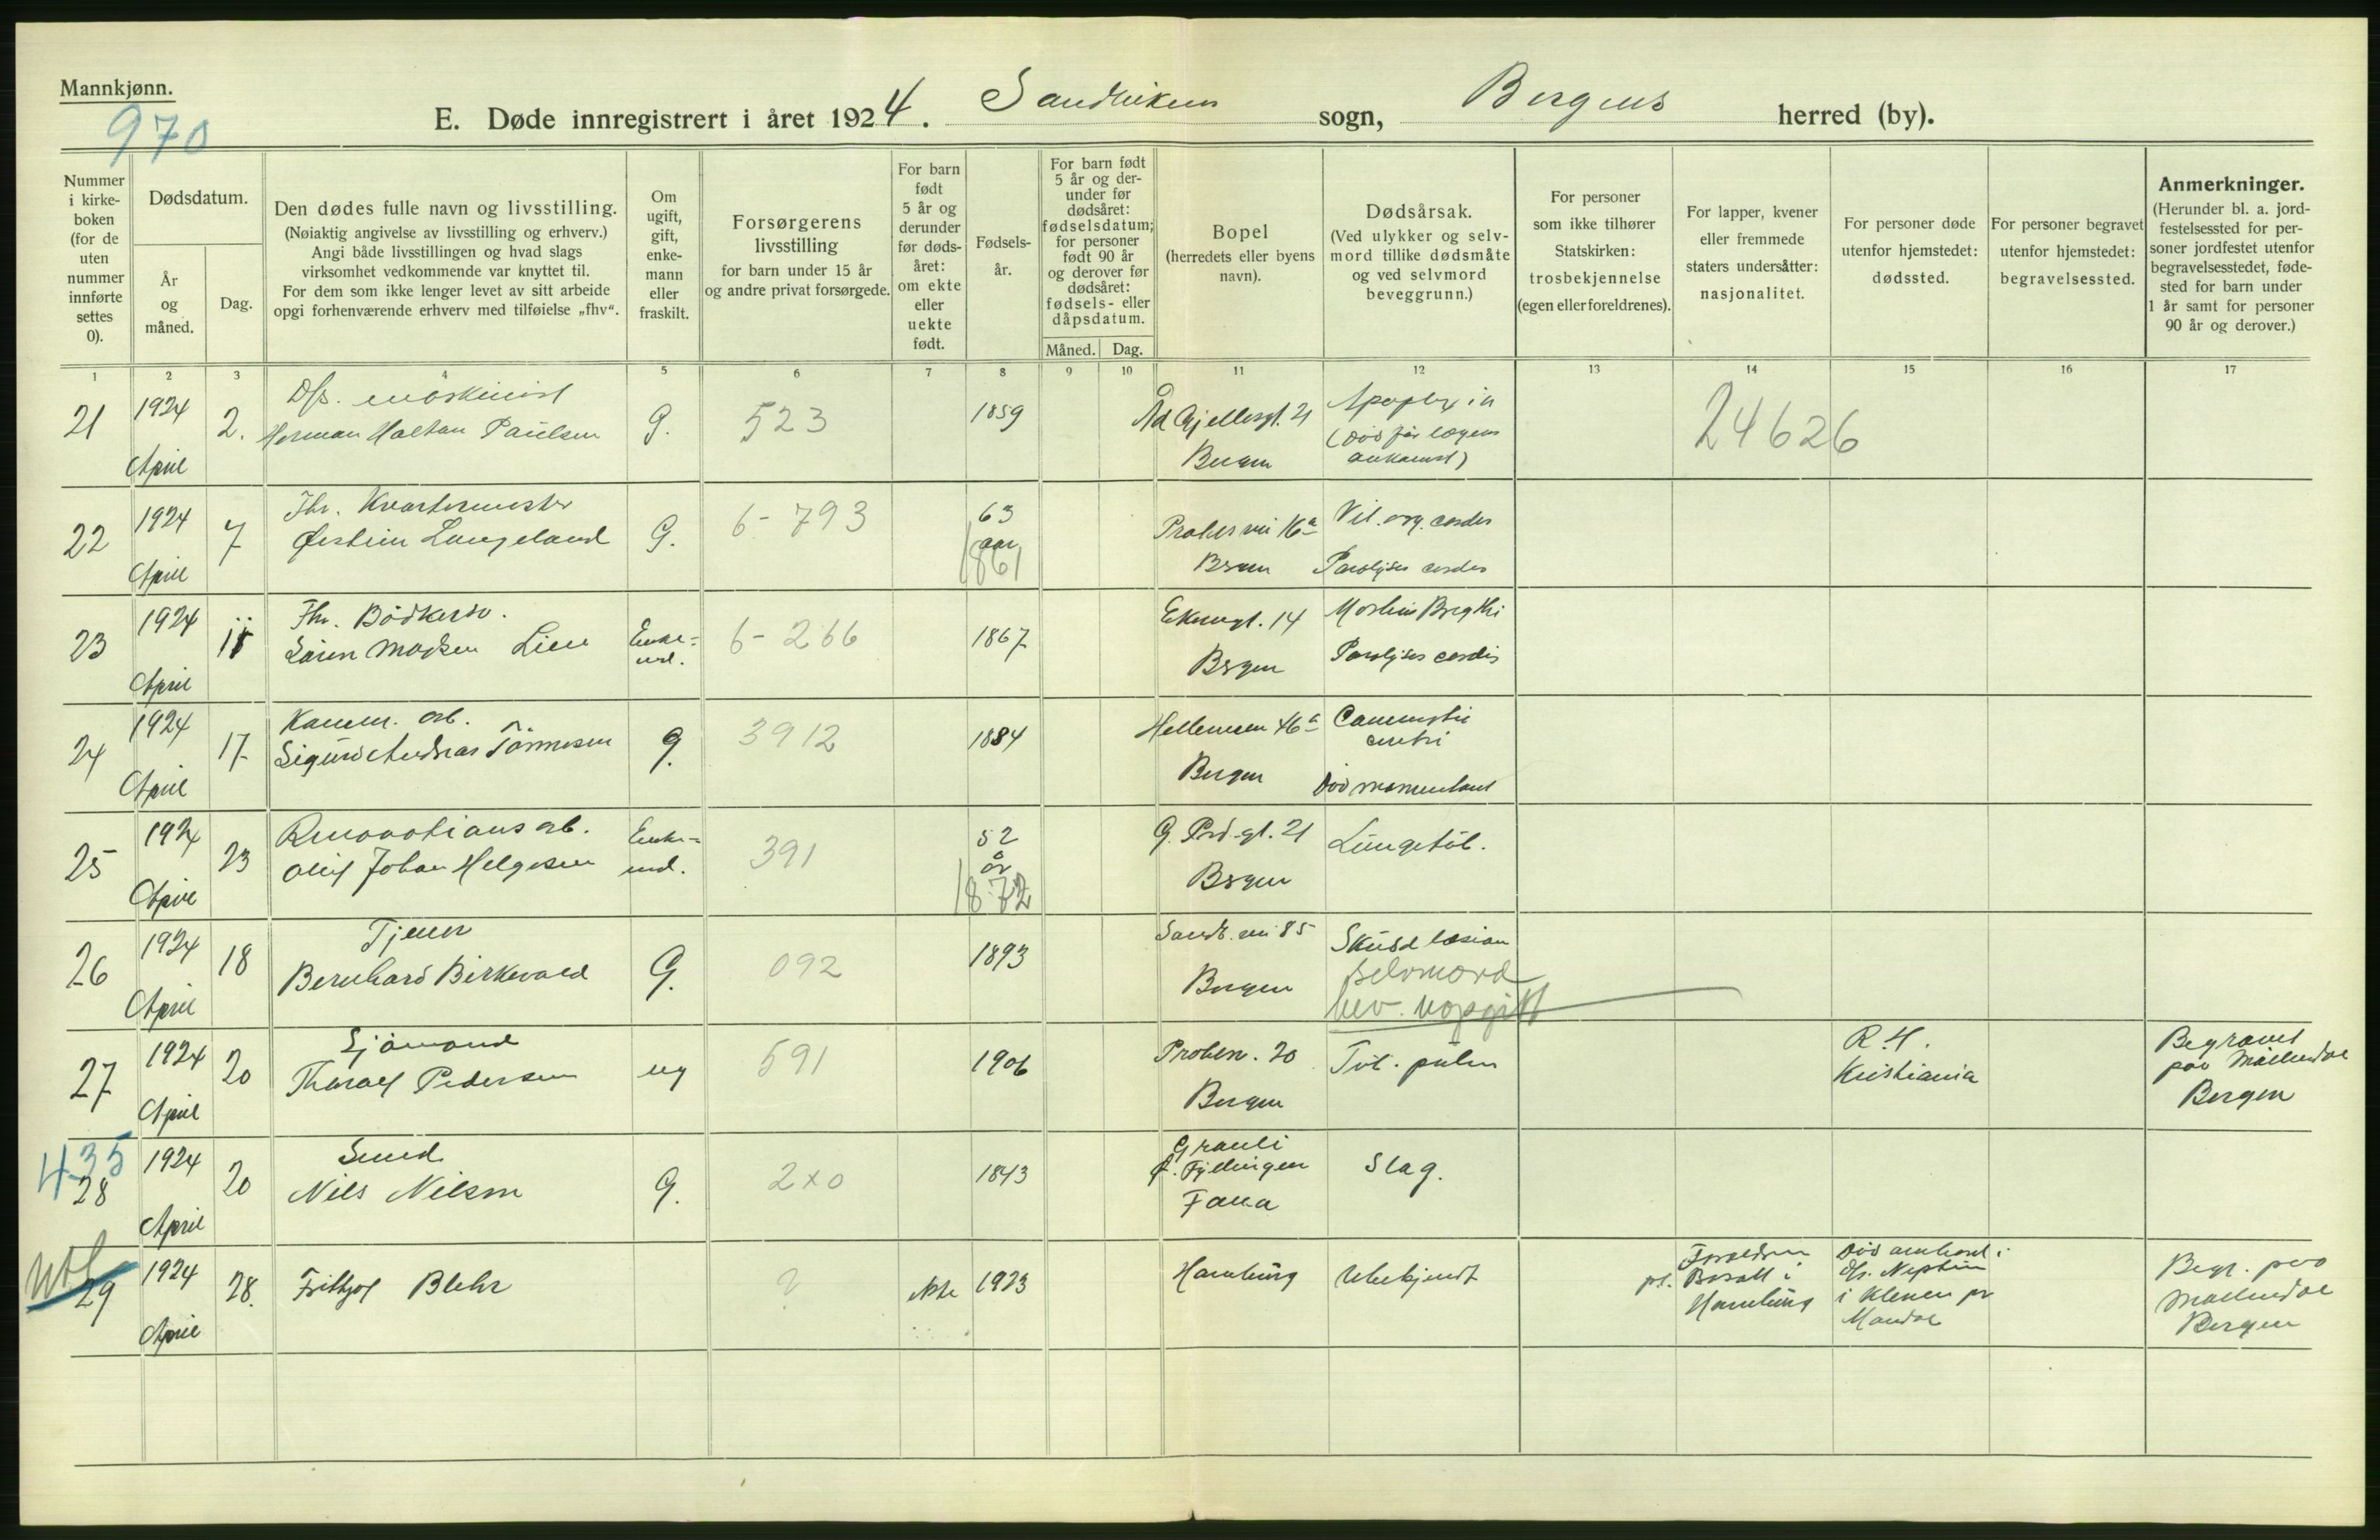 Mannkjønn.
970
E. Døde innregistrert i året 1924. Sandvikens sogn, Bergens herred (by).
Nummer i kirke-boken (for de uten nummer innførte settes 0).
Dødsdatum.
År og måned.
Dag.
Den dødes fulle navn og livsstilling.
(Nøiaktig angivelse av livsstilling og erhverv.)
Angi både livsstillingen og hvad slags
virksomhet vedkommende var knyttet til.
For dem som ikke lenger levet av sitt arbeide
opgi forhenværende erhverv med tilføielse „fhv“.
Om ugift, gift, enke-mann eller fraskilt.
Forsørgerens livsstilling
for barn under 15 år
og andre privat forsørgede.
For barn født 5 år og derunder før døds-året: om ekte eller uekte født.
Fødsels-år.
For barn født 5 år og der-under før dødsåret: fødselsdatum; for personer født 90 år og derover før dødsåret: fødsels- eller dåpsdatum.
Måned. Dag.
Bopel
(herredets eller byens navn).
Dødsårsak.
(Ved ulykker og selv-mord tillike dødsmåte og ved selvmord beveggrunn.)
For personer som ikke tilhører Statskirken: trosbekjennelse (egen eller foreldrenes).
For lapper, kvener eller fremmede staters undersåtter: nasjonalitet.
For personer døde utenfor hjemstedet: dødssted.
For personer begravet utenfor hjemstedet: begravelsessted.
Anmerkninger.
(Herunder bl. a. jord-festelsessted for per-soner jordfestet utenfor begravelsesstedet, føde-sted for barn under 1 år samt for personer 90 år og derover.)
1 2 3 4 5 6 7 8 9 10 11 12 13 14 15 16 17
21 1924 April 2. D/s. maskinist
Herman Haltan Paulsen G. 523 1859 Ad Gjellesgt. 21 Bergen Apoplexia (død før lægens ankomst) 24626
22 1924 April 7 Fhv. Kvartermester
Østein Langeland G. 6-793 63 aar 1861 16a Bergen cordis Paralyses cordis
23 1924 April 11 Fhv. Bødkersv.
Sören Madsen Lien Enke-md. 6-266 1867 Ekrengt. 14 Bergen Morbus Brigthi Paralyses cordis
24 1924 April 17 Kamm. arb.
Sigurd Andreas Tönnesen G. 3912 1884 46a Bergen Død momentant
25 1924 April 23 Renovations arb.
Oluf Johan Helgesen Enke-md. 391 52 år 1872 21 Bergen Lungetub.
26 1924 April 18 Tjener
Bernhard Birkevold G. 092 1893 Sandv. vei 85 Bergen Skudd læsion selvmord bev. uopgitt
27 1924 April 20 Sjömand
Tharalf Pedersen ug 591 1906 Proben. 20 Bergen Tub. pulm R.H. Kristiania Begravet paa Møllendal Bergen
435
28 1924 April 20 Smed
Nils Nilsen G. 2x0 1843 Grauli p. Fyllingen Fana Slag.
utl
29 1924 April 28. Frithjof Blehr ? ekte 1923 Hamburg Ubekjendt Foreldrene pt. Bosatt i Hamburg Død ombord i D/s. Neptun i Kleven pr Mandal Begr. paa Møllendal Bergen